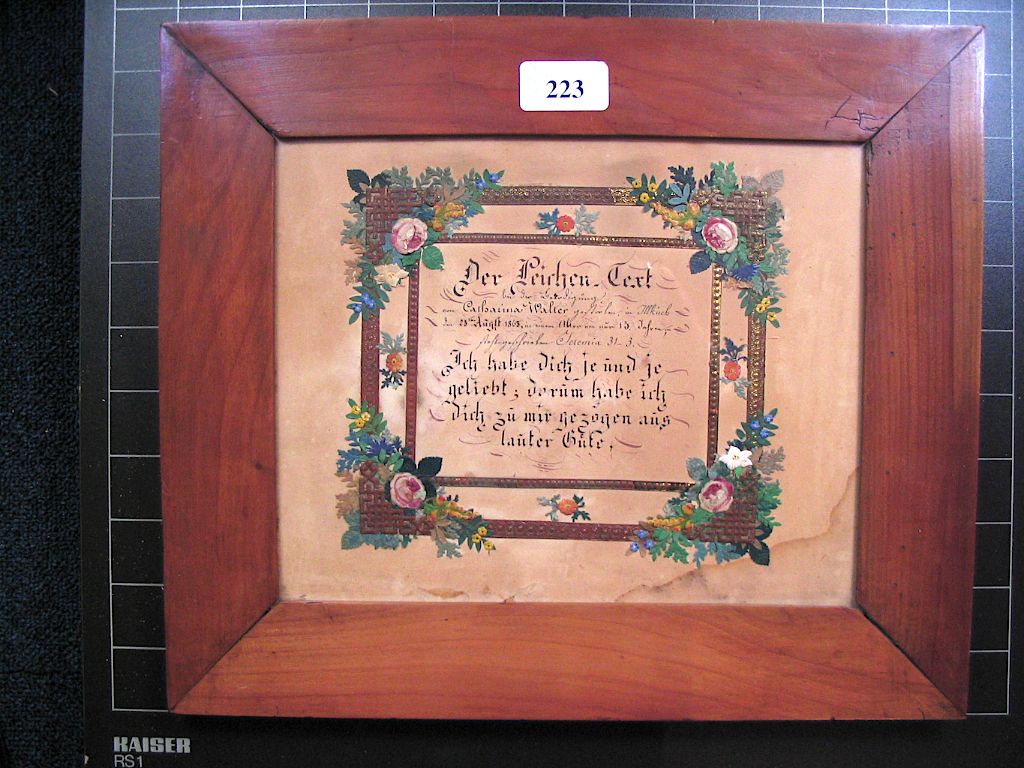 223
Der Leichen-Text
bei der Beerdigung
von Catharina Walter gestorben, in
den Augst 1868, in einem Alter von nur 13 Jahren,
Jeremia 31. 3.
Ich habe dich je und je
geliebt; dorum habe ich
dich zu mir gezogen aus
lauter Güte,
KAISER
RS1